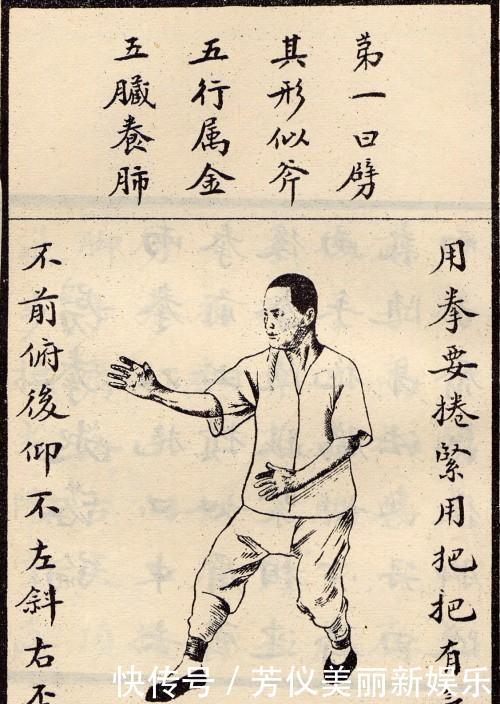 第一曰劈
其形似斧
五行属金
五臟養肺
用拳要捲緊用把把有
不前俯後仰不左斜右
快传号 / 芳仪美丽新娱乐